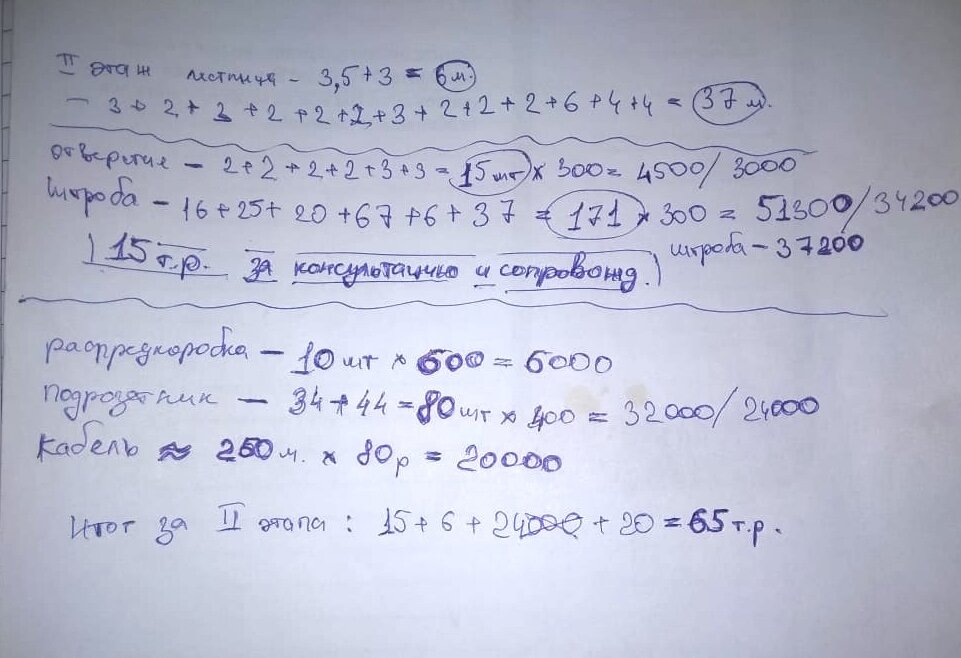 II этаж лестница - 3,5+3 = 6 м.
- 3 + 2 + 3 + 2 + 2 + 2 + 3 + 2 + 2 + 2 + 6 + 4 + 4 = 37 м.
отверстие - 2+2+2+2+3+3 = 15 шт × 300 = 4500/3000
Штроба - 16+25+20+67+6+37 = 171 × 300 = 51300/34200
штроба - 37200
15 т.р. за консультацию и сопровожд.
распредкоробка - 10 шт × 600 = 6000
Подрозетник - 34+44 = 80 шт × 400 = 32000/24000
Кабель ≈ 250 м. × 80 р = 20000
Итог за II этапа : 15 + 6 + 24000 + 20 = 65 т.р.